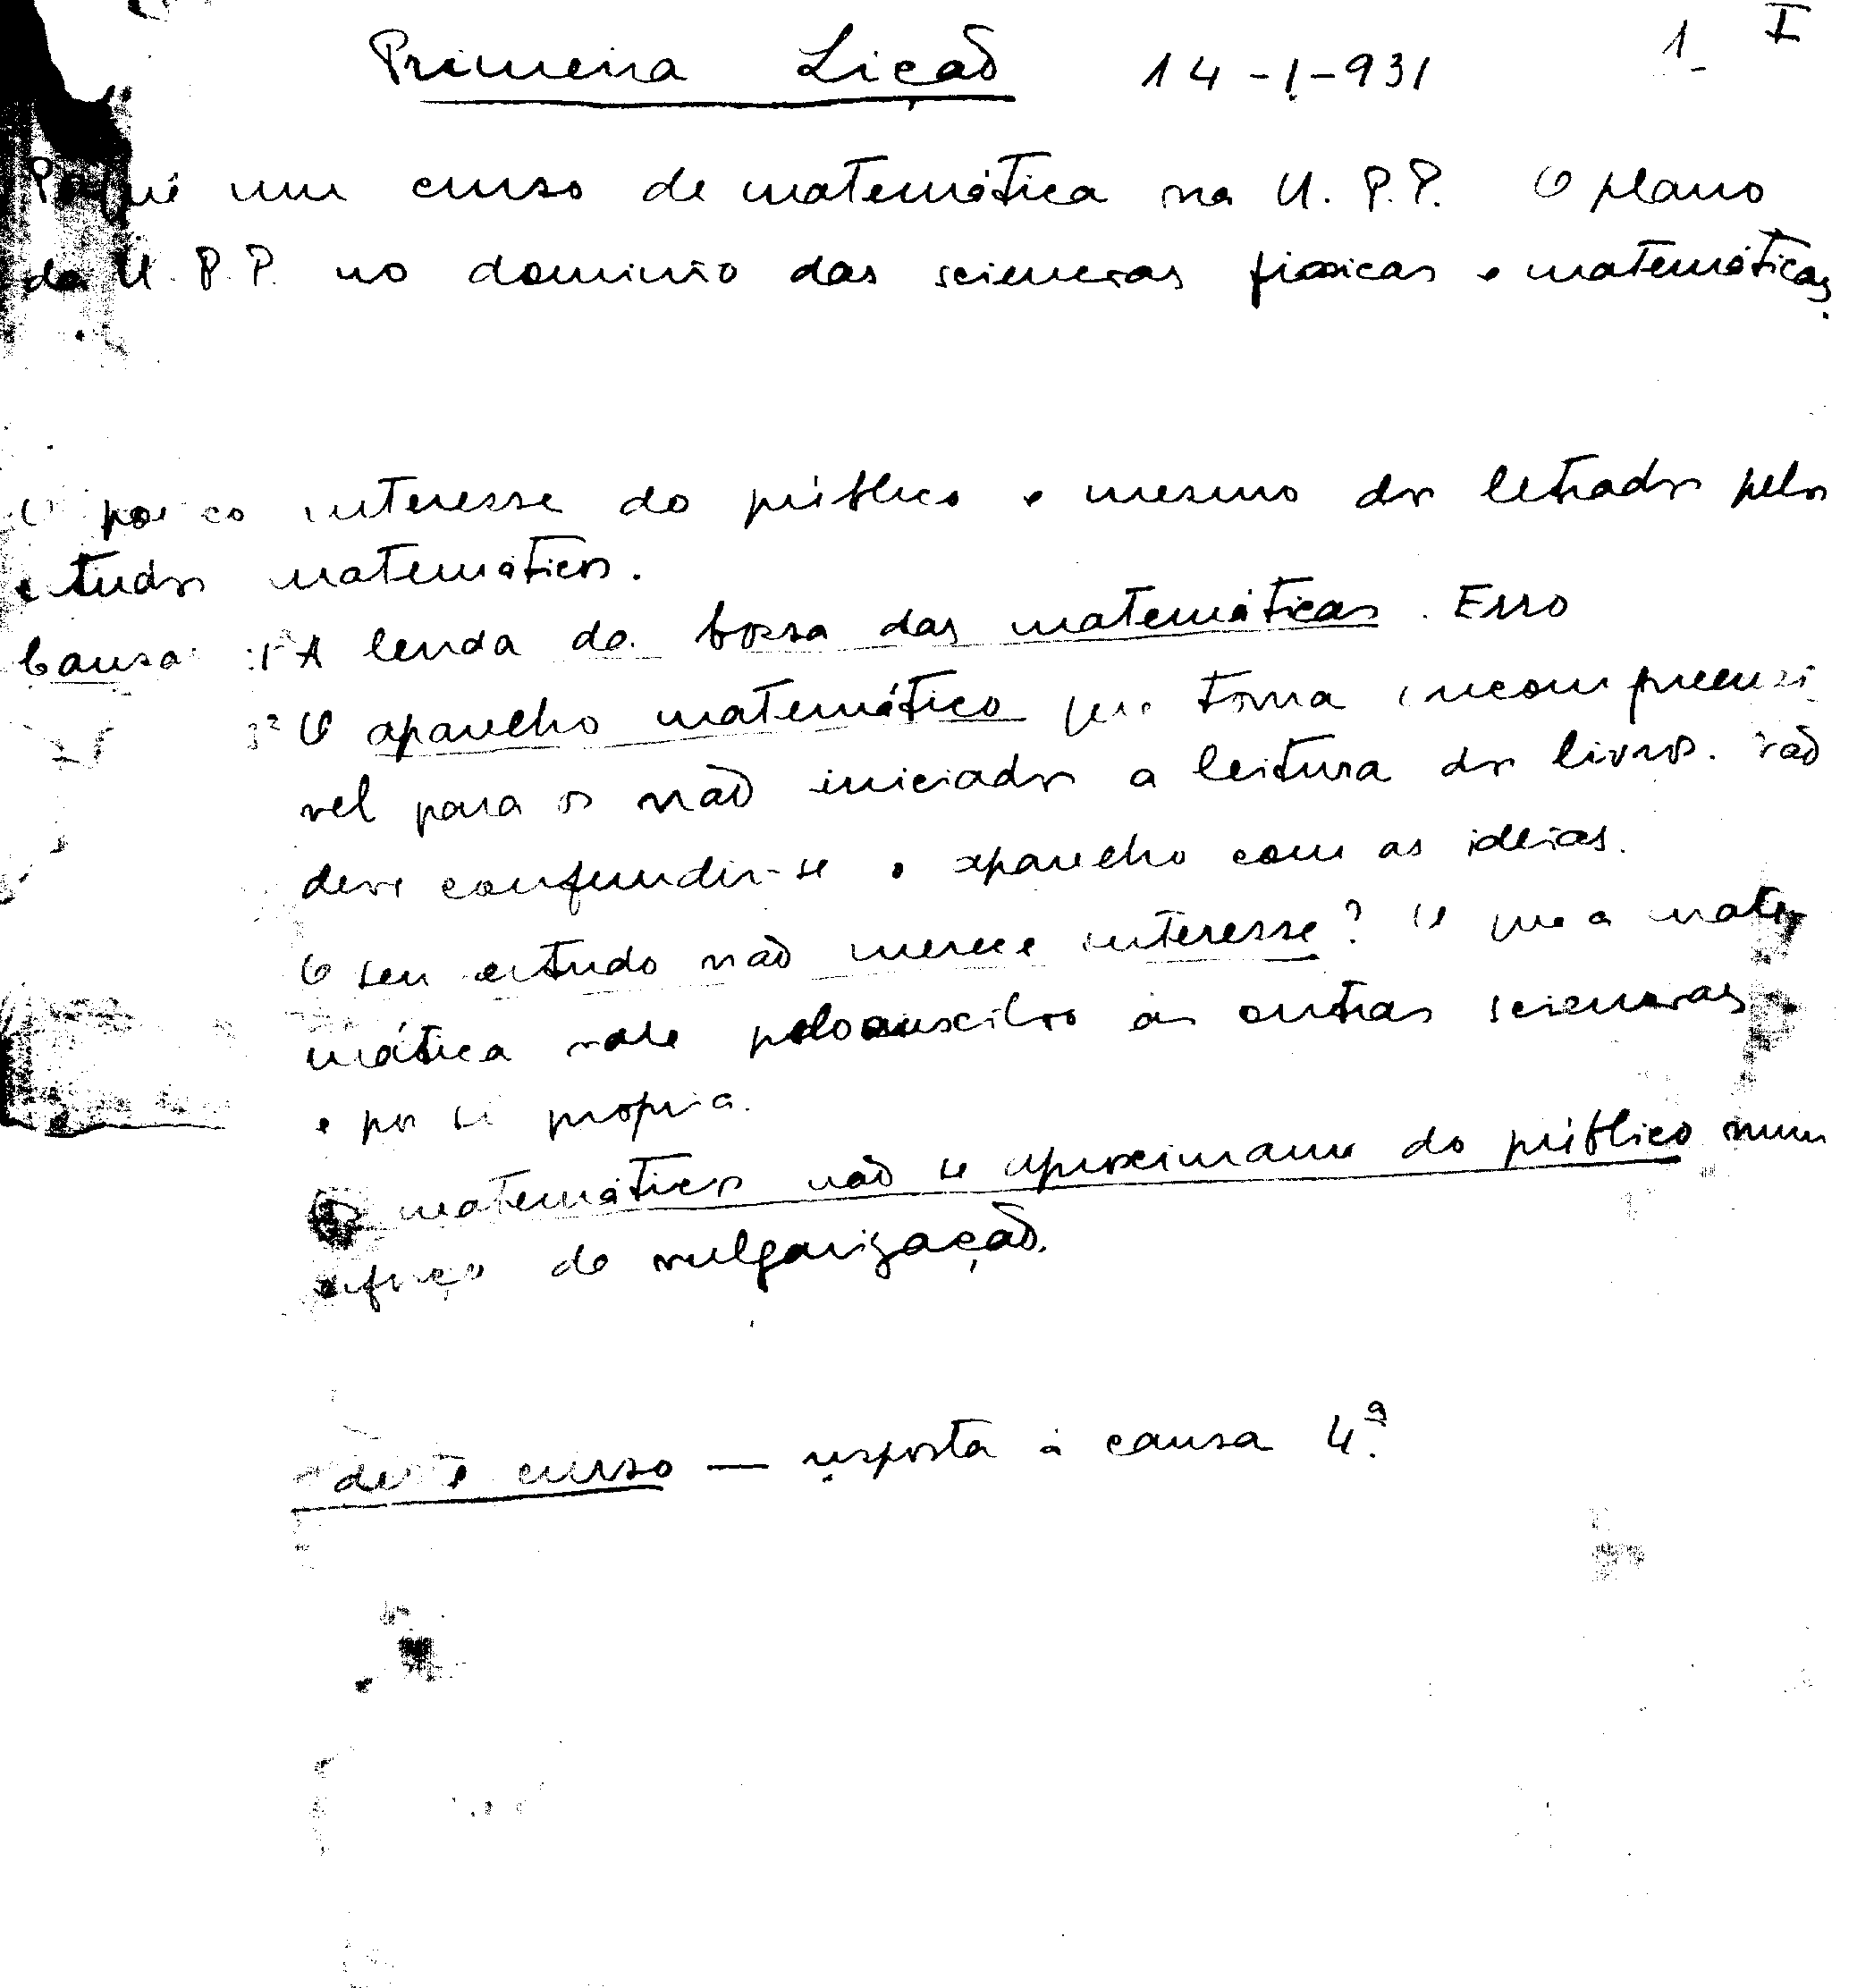 1 I
Primeira Lição 14-1-931
Porquê um curso de matemática na U.P.P. O plano
da U.P.P. no dominio das sciencias fisicas e matemáticas.
O pouco interesse do público e mesmo dos letrados pelos
estudos matemáticos.
Causas: 1ª A lenda da bossa das matemáticas. Erro
O aparelho matemático que torna incompreensi
vel para os não iniciados a leitura dos livros. Não
deve confundir-se o aparelho com as ideias.
O seu estudo não merece interesse? que a mate
mática vale pelo auxilio ás outras sciencias
e por si propria.
Os matemáticos não se aproximam do público num
esforço de vulgarização.
deste curso — resposta à causa 4ª.